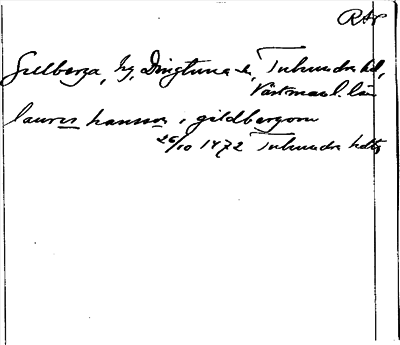 RAP
Gillberga, by, Dingtuna sn, Tuhundra hd,
Västmanl. län
laurens hansson i gildbergom
26/10 1472 Tuhundra hdtg